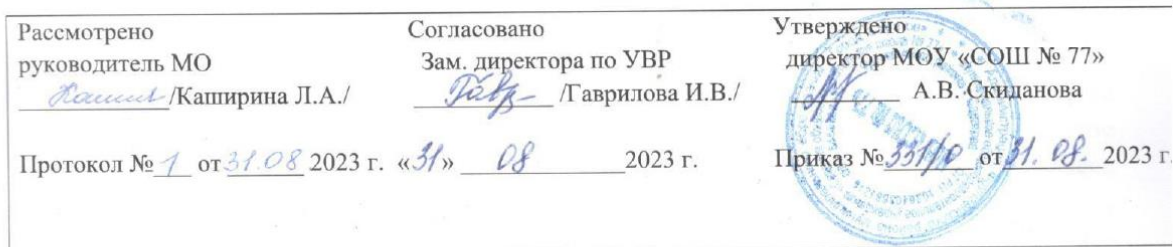 Рассмотрено
руководитель МО
/Каширина Л.А./
Протокол № 1 от 31.08 2023 г.
Согласовано
Зам. директора по УВР
/Гаврилова И.В./
«31» 08 2023 г.
Утверждено
директор МОУ «СОШ № 77»
А.В. Скиданова
Приказ № 331/0 от 31.08. 2023 г.